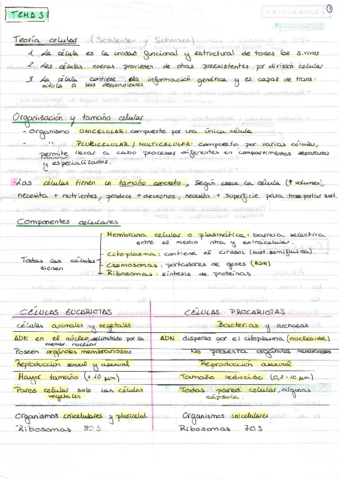 TEMA 3
1
Teoría celular (Schleiden y Schwann)
1. La célula es la unidad funcional y estructural de todos los s.vivos
2. Las células nuevas provienen de otras preexistentes por división celular
3. La célula contiene la información genética y es capaz de trans-
mitirla a sus descendientes.
Organización y tamaño celular
- Organismo UNICELULAR: compuesto por una única célula
- " PLURICELULAR / MULTICELULAR: compuesto por varias células,
permite llevar a cabo procesos diferentes en compartimentos separados
y especializados.
Las células tienen un tamaño concreto. Según crece la célula (↑ volumen),
necesita + nutrientes, produce + desechos, necesita + superficie para transportar sust.
Componentes celulares
Todas las células tienen
Membrana celular o plasmática: barrera selectiva
entre el medio intra y extracelular.
Citoplasma: contiene el citosol (sust. semifluida).
Cromosomas: portadores de genes (ADN)
Ribosomas: síntesis de proteínas
CÉLULAS EUCARIOTAS CÉLULAS PROCARIOTAS
células animales y vegetales Bacterias y arqueas
ADN en el núcleo, delimitado por la membr. nuclear ADN disperso por el citoplasma (nucleoide)
Poseen orgánulos membranosos No presenta orgánulos membranosos
Reproducción sexual y asexual Reproducción asexual
Mayor tamaño (+10 µm) Tamaño reducido
Pared celular solo las células vegetales Todas pared celular, algunas cápsula.
Organismos unicelulares y pluricel. Organismos unicelulares
Ribosomas 80S Ribosomas 70S